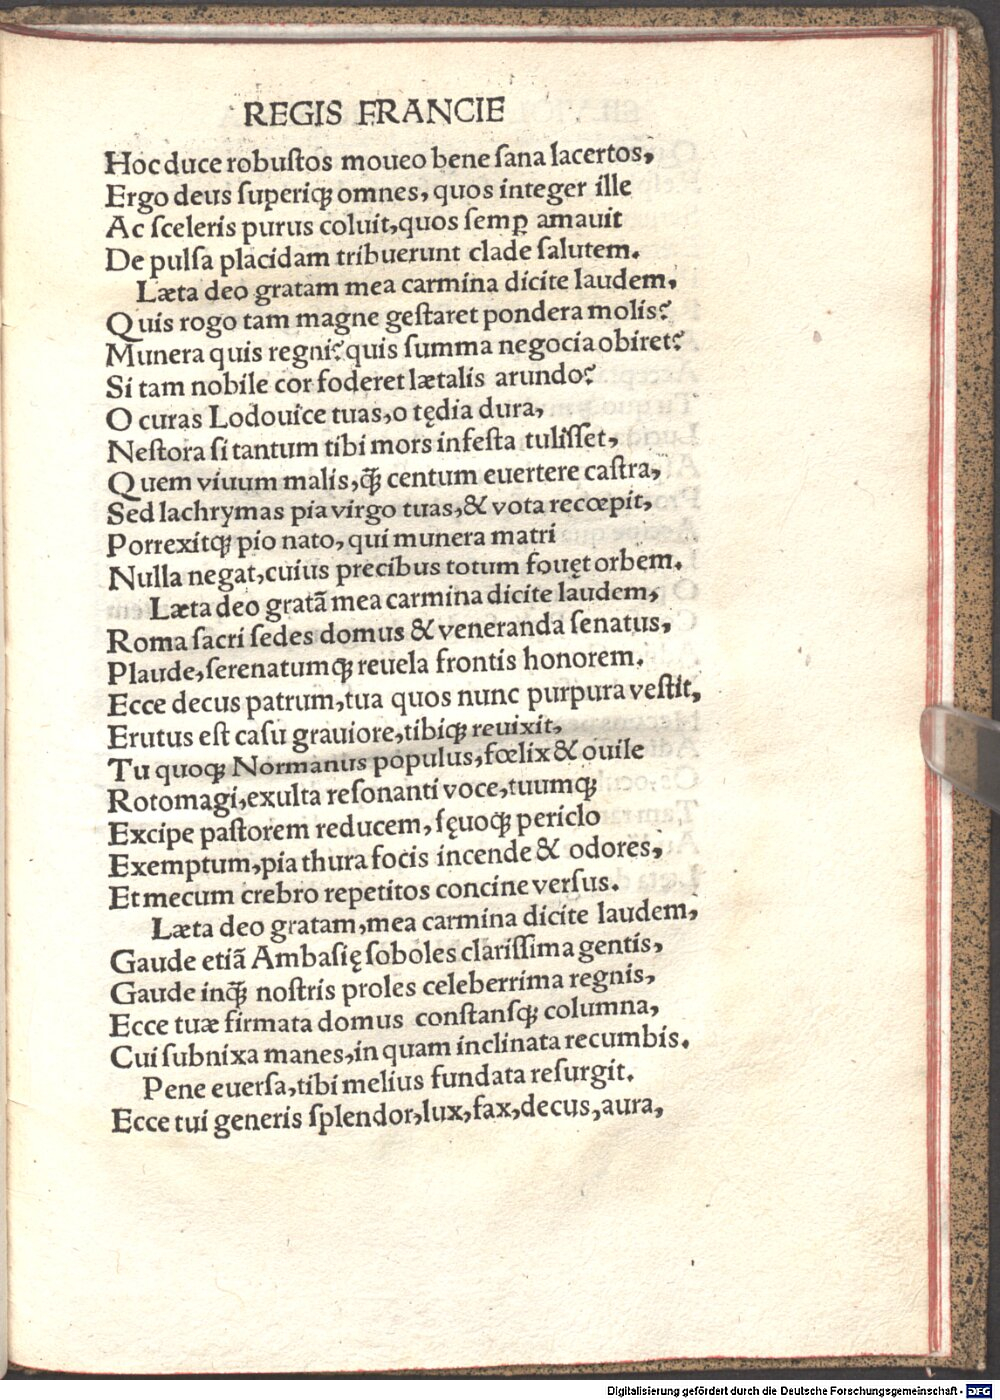 REGIS FRANCIE
Hoc duce robuſtos moueo bene ſana lacertos,
Ergo deus ſuperiqꝫ omnes, quos integer ille
Ac ſceleris purus coluit, quos ſemꝑ amauit
De pulſa placidam tribuerunt clade ſalutem.
Læta deo gratam mea carmina dicite laudem,
Quis rogo tam magne geſtaret pondera molis?
Munera quis regni? quis ſumma negocia obiret?
Si tam nobile cor foderet lætalis arundo?
O curas Lodouice tuas, o tędia dura,
Neſtora ſi tantum tibi mors infeſta tuliſſet,
Quem viuum malis, ꝙ̃ centum euertere caſtra,
Sed lachrymas pia virgo tuas, & vota recœpit,
Porrexitqꝫ pio nato, qui munera matri
Nulla negat, cuius precibus totum fouęt orbem.
Læta deo gratã mea carmina dicite laudem,
Roma ſacri ſedes domus & veneranda ſenatus,
Plaude, ſerenatumqꝫ reuela frontis honorem.
Ecce decus patrum, tua quos nunc purpura veſtit,
Erutus eſt caſu grauiore, tibiqꝫ reuixit,
Tu quoqꝫ Normanus populus, fœlix & ouile
Rotomagi, exulta reſonanti voce, tuumqꝫ
Excipe paſtorem reducem, ſęuoqꝫ periclo
Exemptum, pia thura focis incende & odores,
Et mecum crebro repetitos concine verſus.
Læta deo gratam, mea carmina dicite laudem,
Gaude etiã Ambaſię ſoboles clariſſima gentis,
Gaude inꝙ̃ noſtris proles celeberrima regnis,
Ecce tuæ firmata domus conſtanſqꝫ columna,
Cui ſubnixa manes, in quam inclinata recumbis.
Pene euerſa, tibi melius fundata reſurgit.
Ecce tui generis ſplendor, lux, fax, decus, aura,
Digitalisierung gefördert durch die Deutsche Forschungsgemeinschaft - DFG